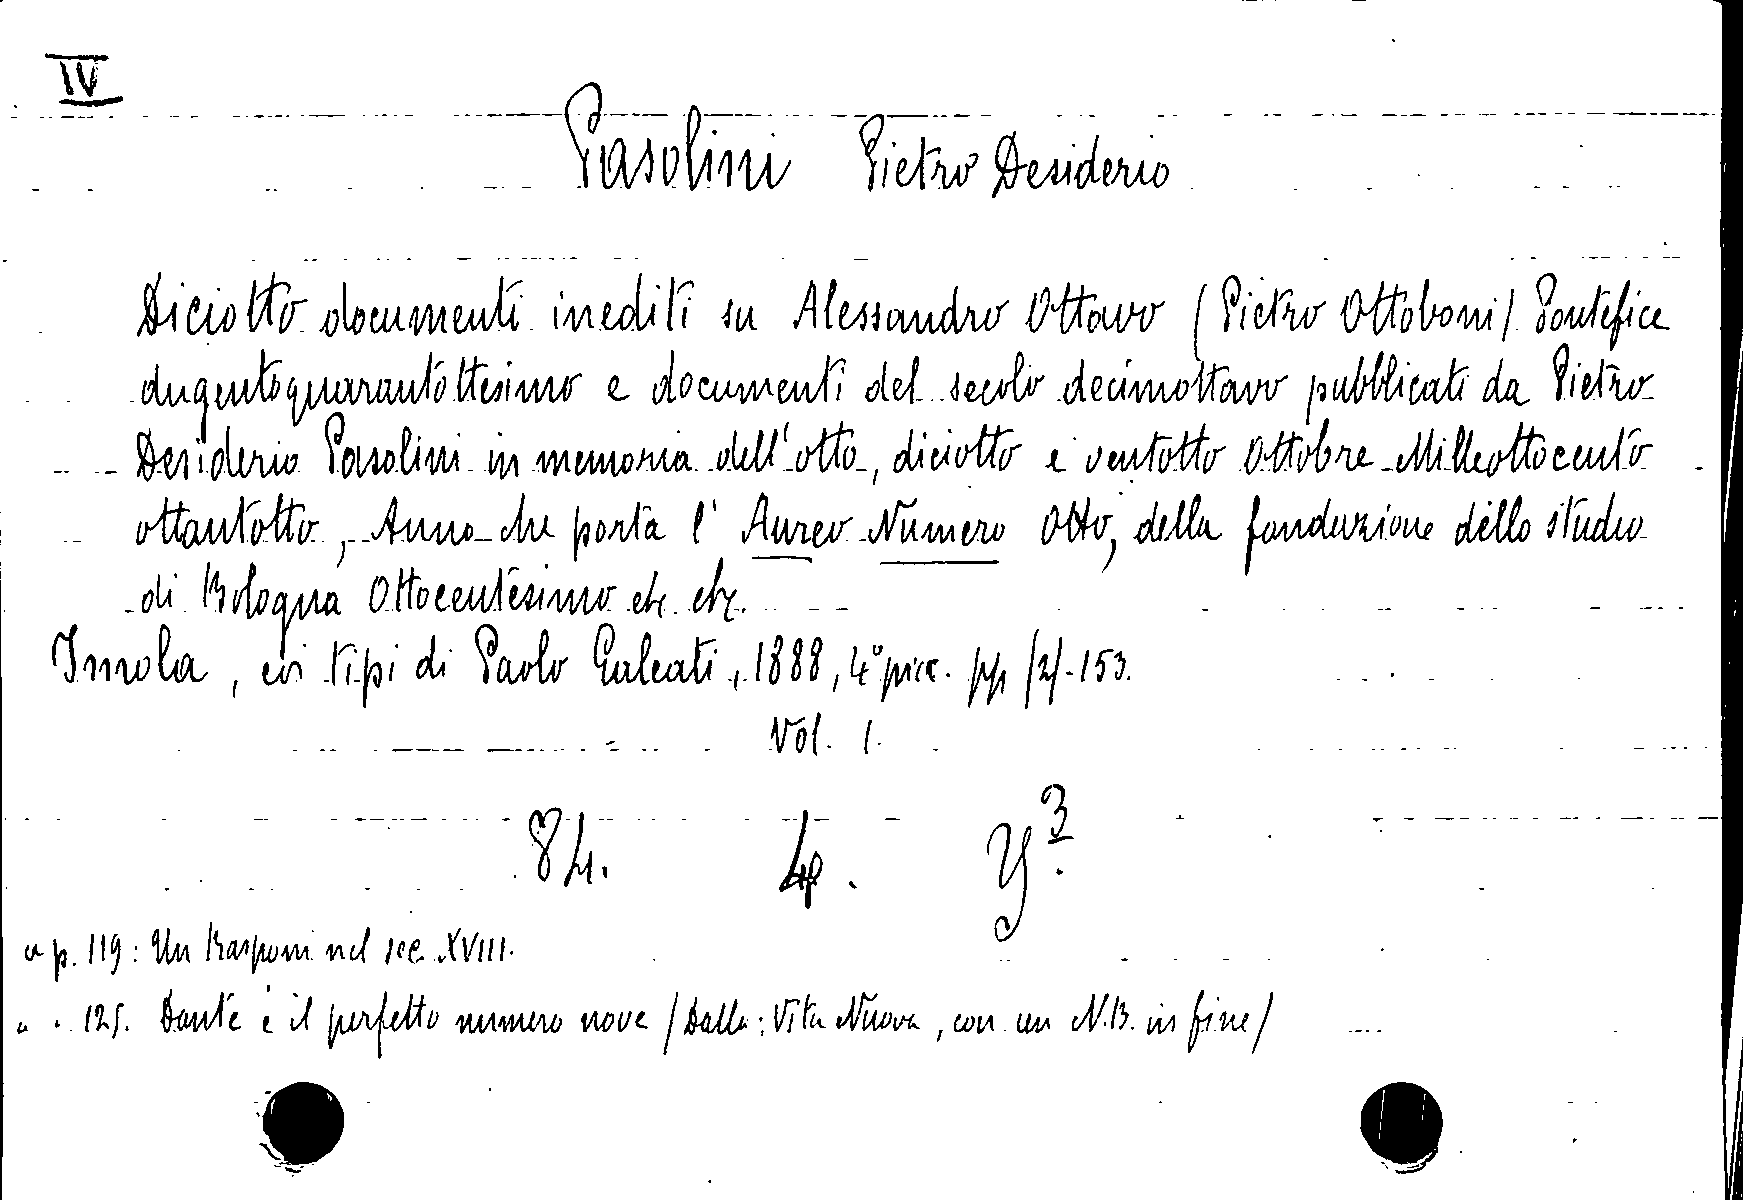 IV
Pasolini Pietro Desiderio
Diciotto documenti inediti su Alessandro Ottavo (Pietro Ottoboni) Pontefice
dugentoquarantottesimo e documenti del secolo decimottavo pubblicati da Pietro
Desiderio Pasolini in memoria dell'otto, diciotto e ventotto Ottobre Milleottocento
ottantotto, Anno che porta l'Aureo Numero Otto, della fondazione dello studio
di Bologna Ottocentesimo etc. etc.
Imola, coi tipi di Paolo Galeati, 1888, 4° picc. pp /2/-153.
Vol. 1.
84. 4. Y³.
a p. 119: Un Rasponi nel sec. XVIII.
" " 125. Dante e il perfetto numero nove /Dalla: Vita Nuova, con un N.B. in fine/